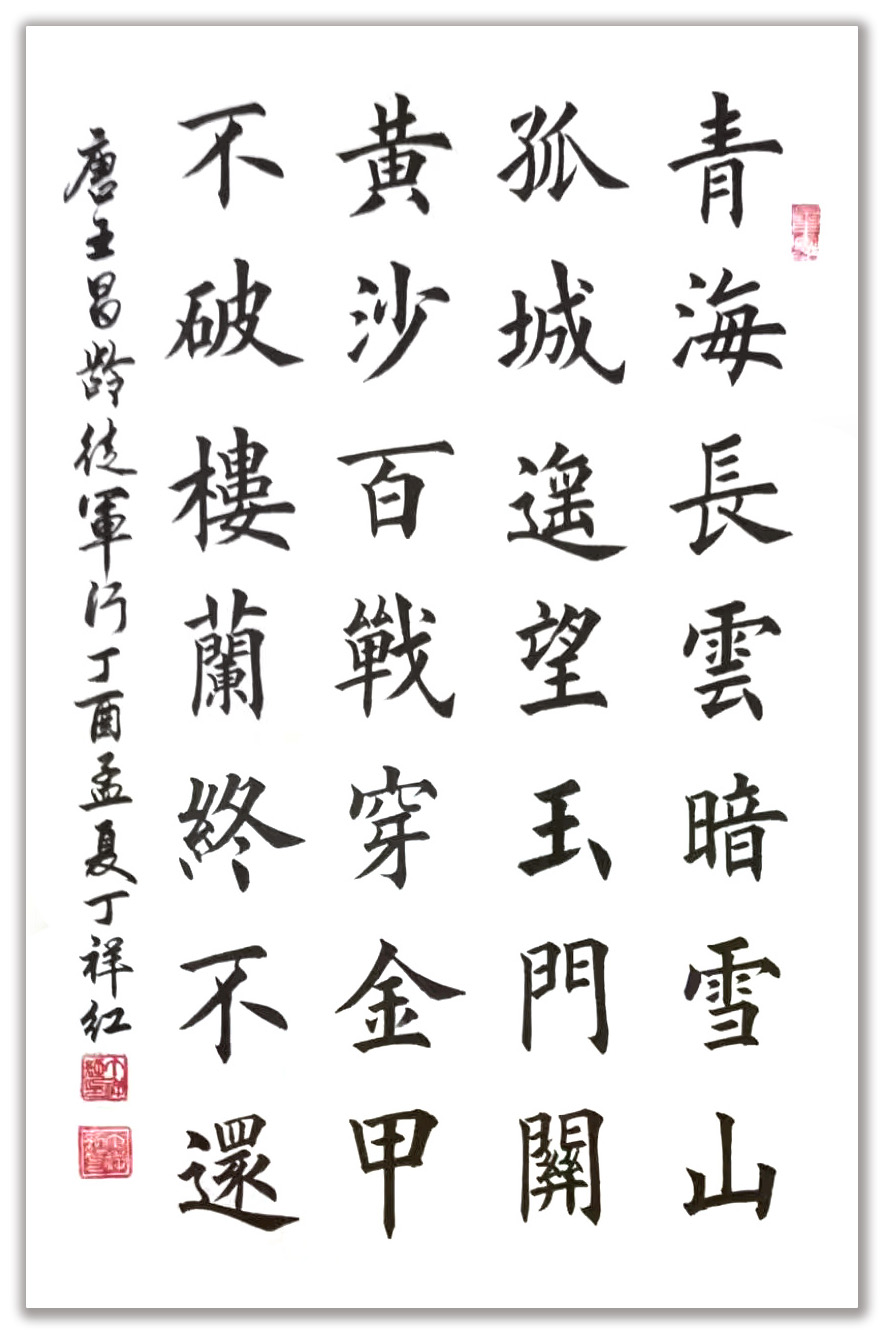 青海長雲暗雪山
孤城遥望玉門關
黄沙百戰穿金甲
不破樓蘭終不還
唐王昌齡從軍行丁酉孟夏丁祥紅